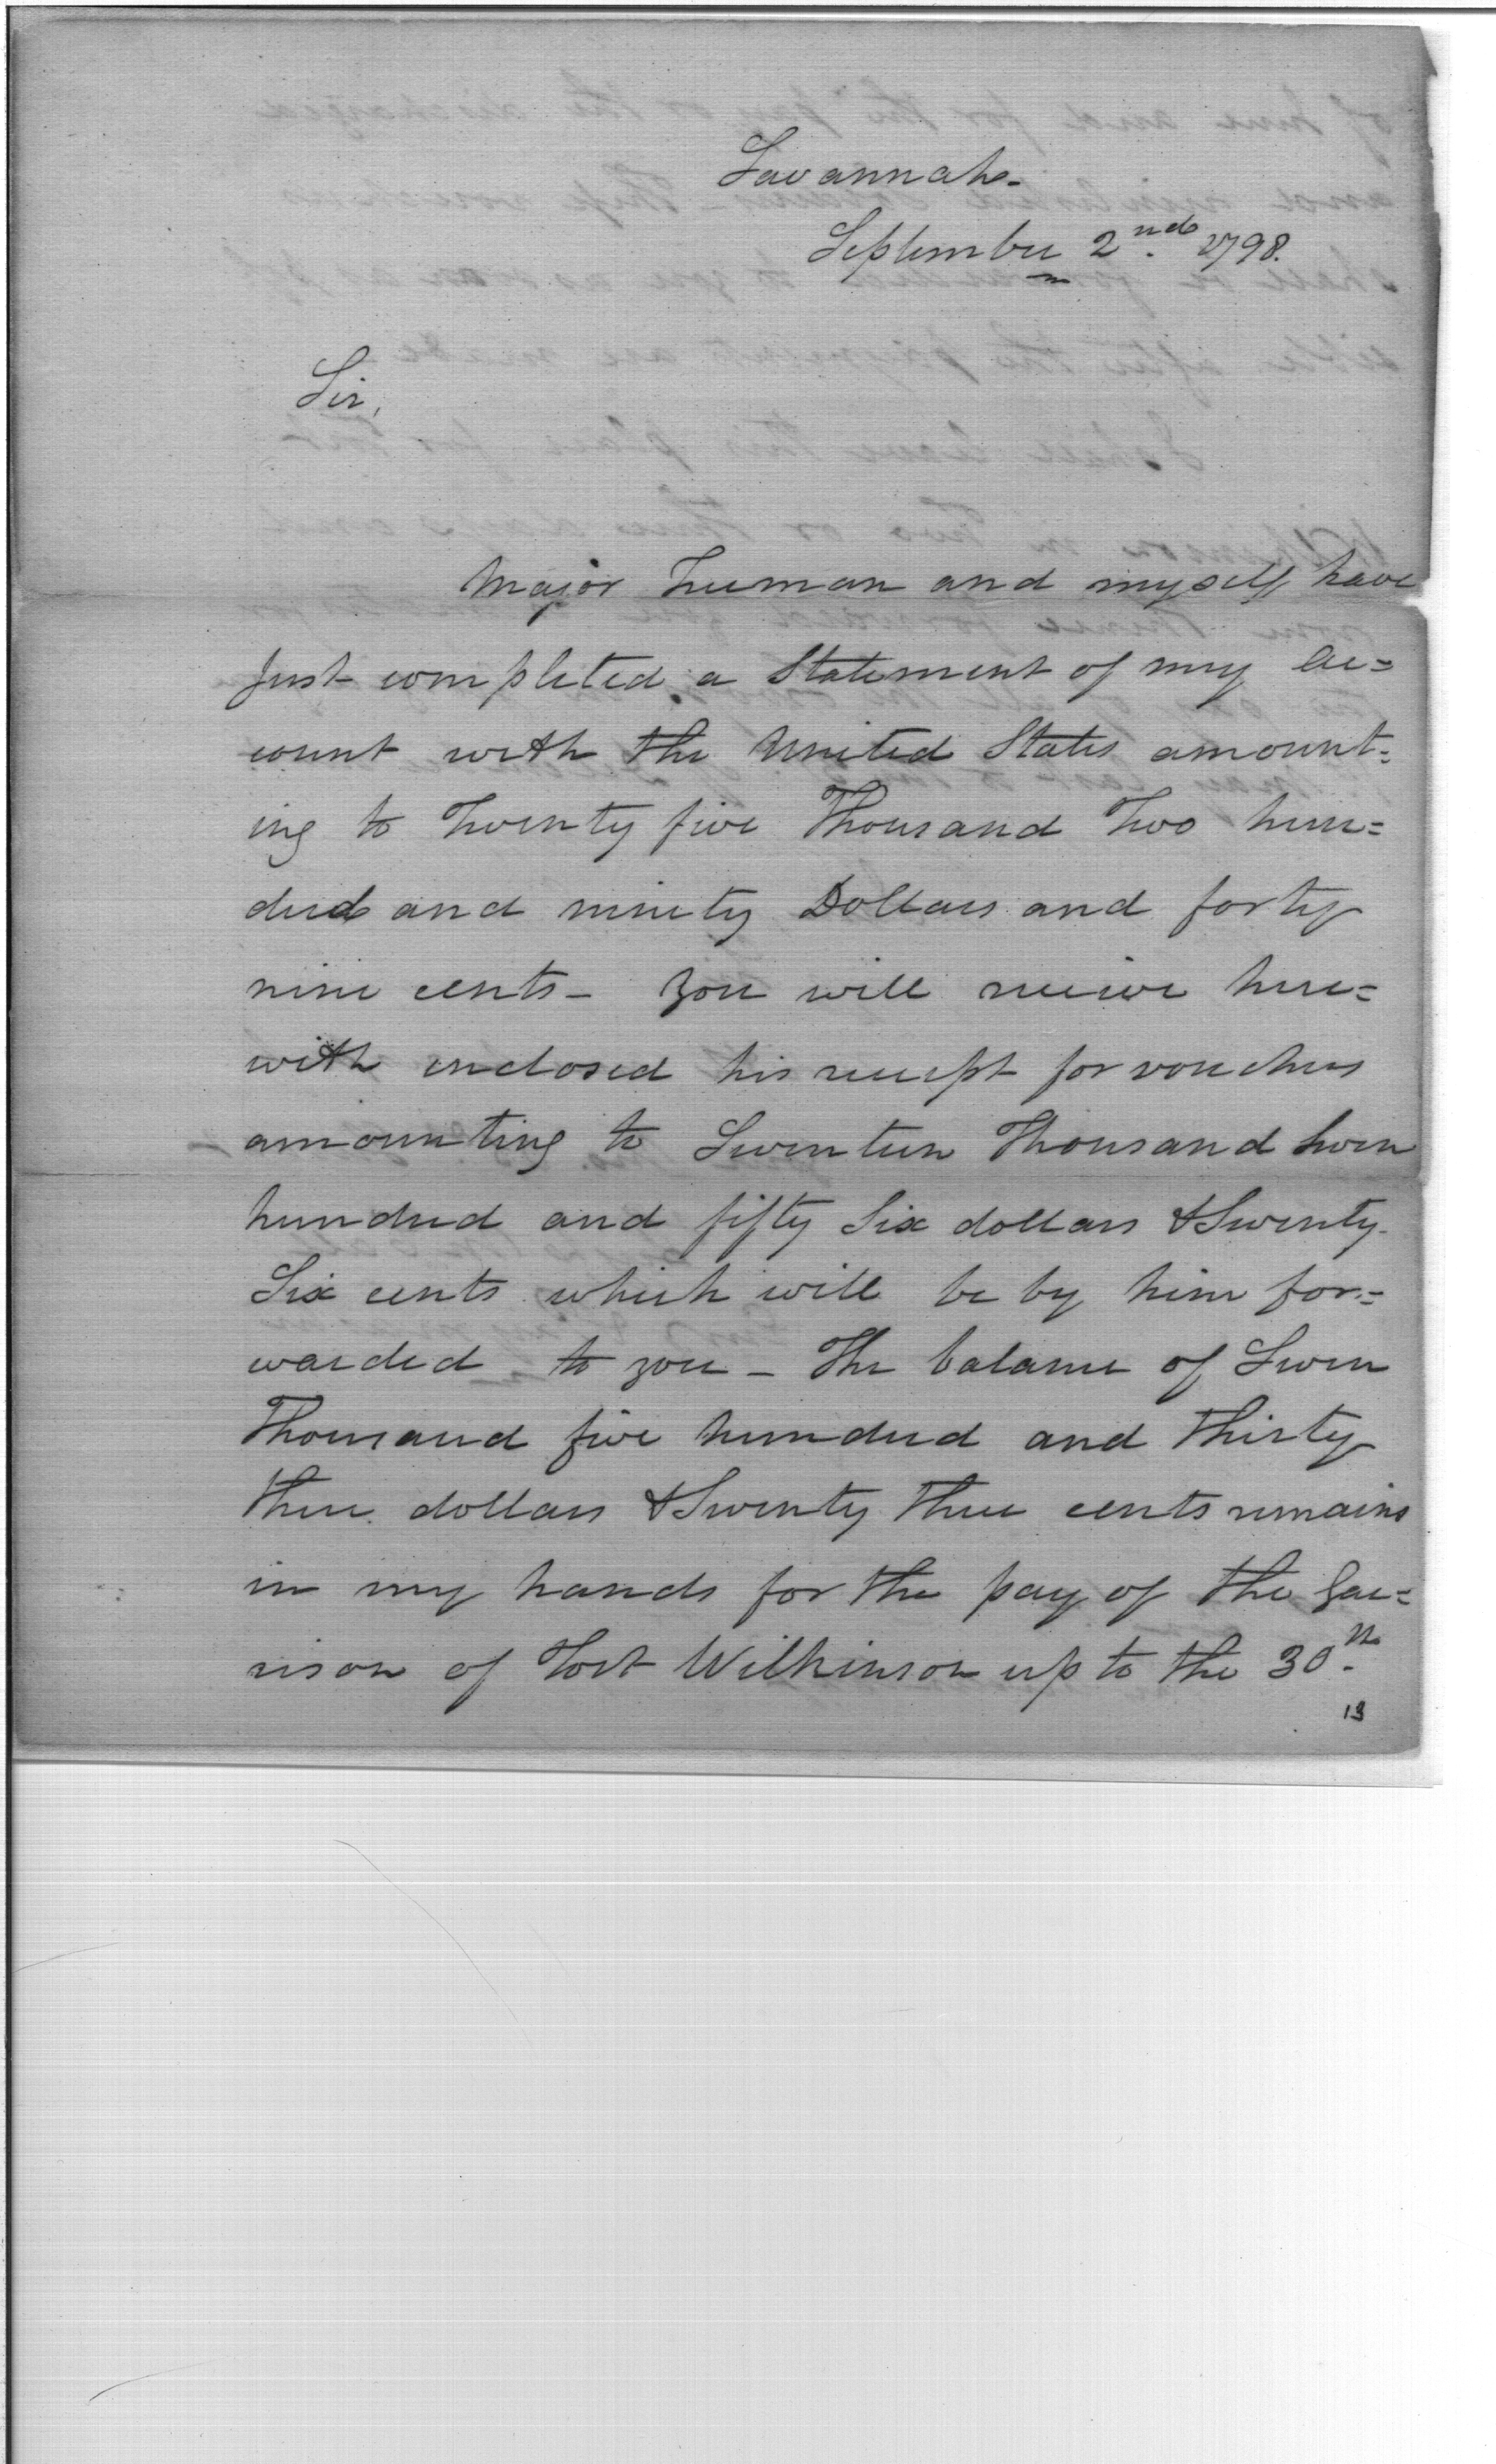 Savannah-
September 2nd. 1798.
Sir,
Major Freeman and myself have
just completed a Statement of my ac=
count with the United States amount=
ing to Twenty five Thousand Two hun=
dred and ninety Dollars and forty
nine cents - You will receive here=
with enclosed his receipt for vouchers
amounting to Seventeen Thousand seven
hundred and fifty Six dollars & Twenty
Six cents which will be by him for=
warded to you - The balance of Seven
Thousand five hundred and Thirty
Three dollars & Twenty Three cents remains
in my hands for the pay of the Gar=
rison of Fort Wilkinson up to the 30th.
13